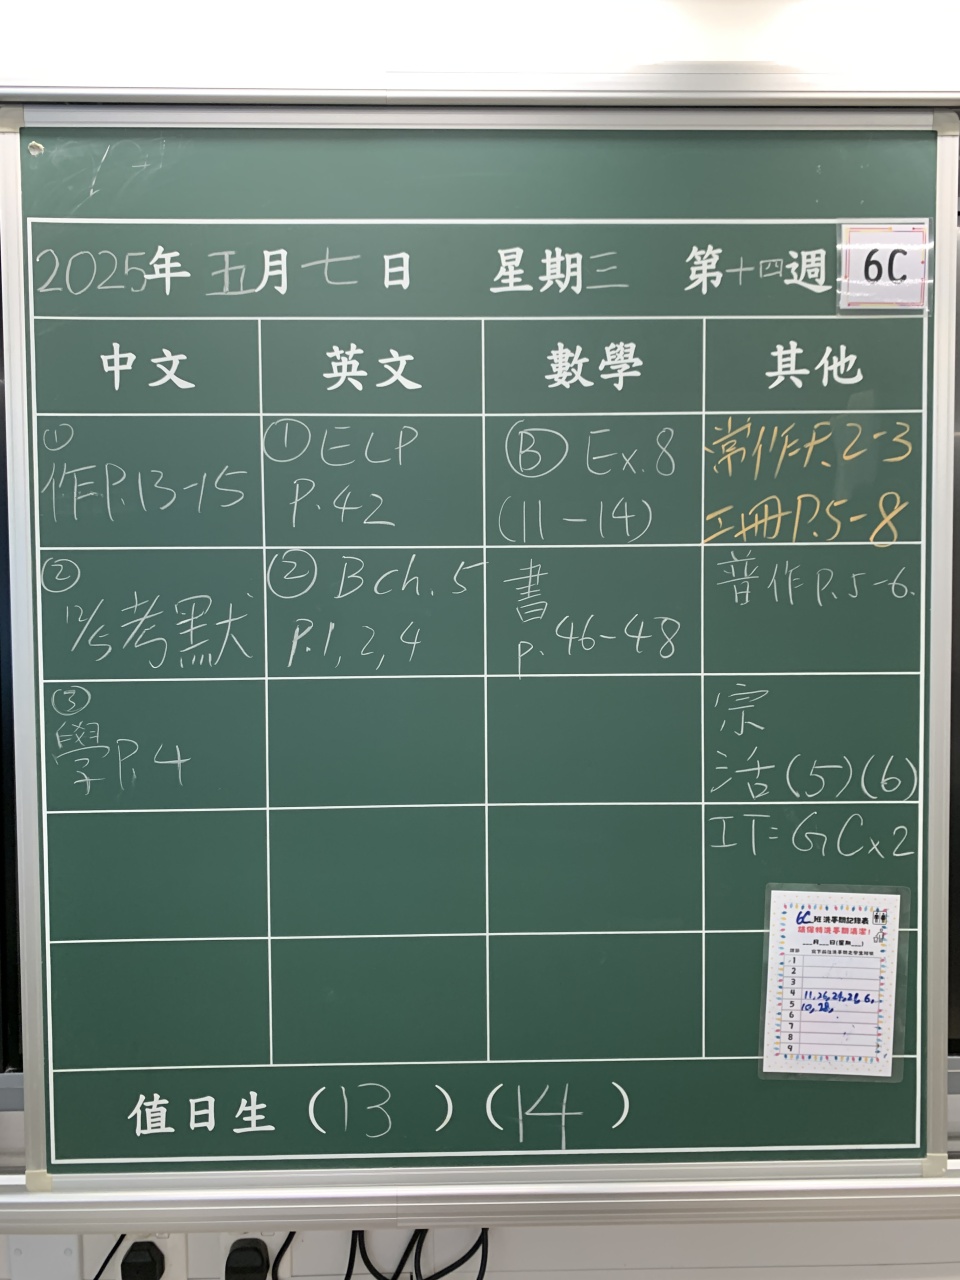 2025年 五月七日 星期三 第十四週 6C
中文 英文 數學 其他
①
作P.13-15
① ELP
P.42
Ⓑ Ex.8
(11-14)
常作P. 2-3
工冊P.5-8
②
12/5考默
② B ch. 5
P.1, 2, 4
書
p. 46-48
普作 P.5-6.
③
學P.4
宗
活(5)(6)
IT=GCx2
6C班洗手間記錄表
請保持洗手間清潔!
___月___日(星期___)
1
2
3
4 11, 26, 24, 21, 6,
5 10, 28,
6
7
8
9
值日生 (13) (14)